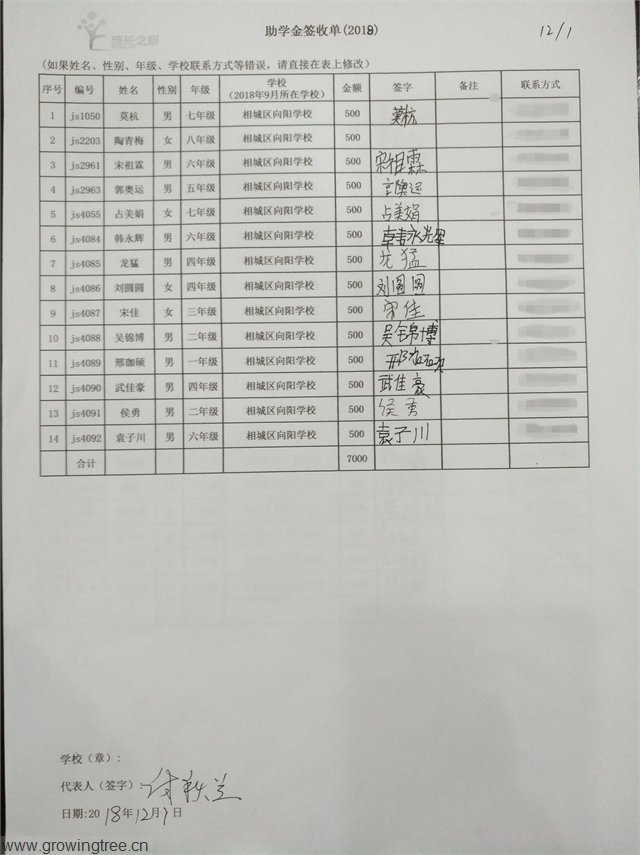 成长之树
助学金签收单(2018)
12/1
(如果姓名、性别、年级、学校联系方式等错误，请直接在表上修改)
序号 编号 姓名 性别 年级 学校 (2018年9月所在学校) 金额 签字 备注 联系方式
1 js1050 莫杭 男 七年级 相城区向阳学校 500 莫杭
2 js2203 陶青梅 女 八年级 相城区向阳学校 500
3 js2961 宋祖霖 男 六年级 相城区向阳学校 500 宋祖霖
4 js2963 郭奥运 男 五年级 相城区向阳学校 500
5 js4055 占美娟 女 七年级 相城区向阳学校 500 占美娟
6 js4084 韩永辉 男 六年级 相城区向阳学校 500 韩永辉
7 js4085 龙猛 男 四年级 相城区向阳学校 500 龙猛
8 js4086 刘圆圆 女 四年级 相城区向阳学校 500 刘圆圆
9 js4087 宋佳 女 三年级 相城区向阳学校 500 宋佳
10 js4088 吴锦博 男 二年级 相城区向阳学校 500 吴锦博
11 js4089 邢珈硕 男 一年级 相城区向阳学校 500
12 js4090 武佳豪 男 四年级 相城区向阳学校 500 武佳豪
13 js4091 侯勇 男 二年级 相城区向阳学校 500 侯勇
14 js4092 袁子川 男 六年级 相城区向阳学校 500 袁子川
合计 7000
学校（章）:
代表人（签字）:
日期:2018年12月7日
www.growingtree.cn